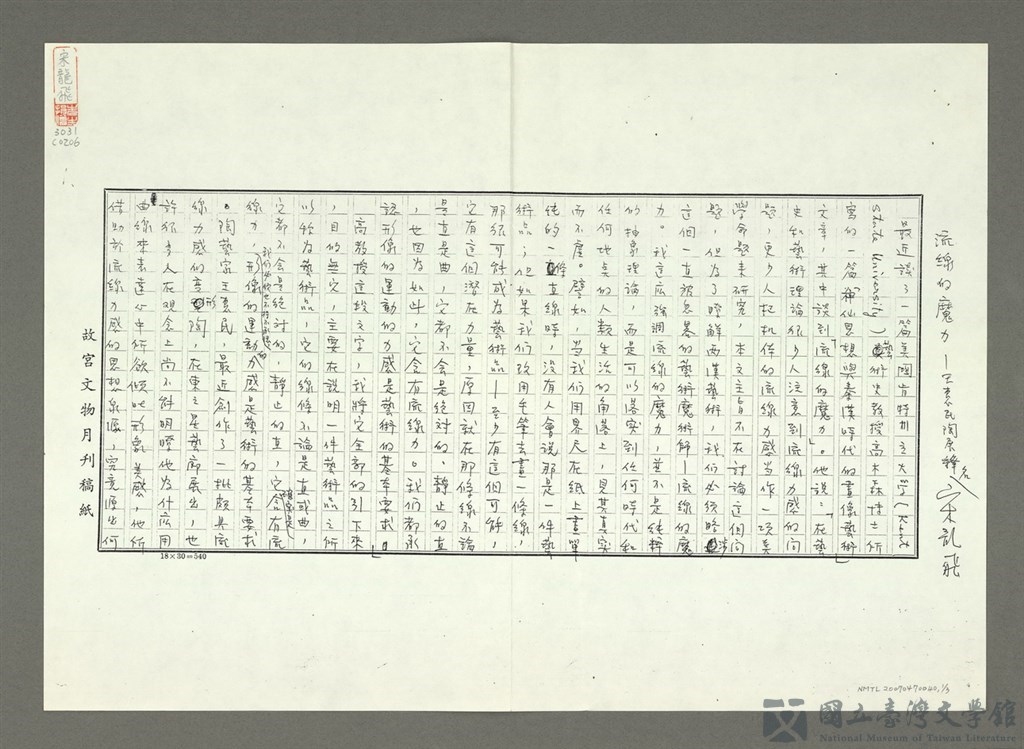 流線的魔力—王素民陶展釋名 宋龍飛
最近讀了一篇美國肯特州立大學(Kent
State University)藝術史教授高木森博士所
寫的一篇「神仙思想與秦漢時代的畫像藝術」
文章，其中談到「流線的魔力」。他說：「在藝
史和藝術理論很少人注意到流線力感的問
題，更少人把機條的流線力感當作一項美
學命題來研究，本文主旨不在討論這個問
題，但為了瞭解兩漢藝術，我們必須略涉
這個一直被忽略的藝術魔術師—流線的魔
力。我這麼強調流線的魔力，並不是純粹
的抽象理論，而是可以落實到任何時代和
任何地點的人類生活的角落上，見其真實
而不虛。譬如，當我們用界尺在紙上畫單
純的一條直線時，沒有人會說那是一件藝
術品；但如果我們改用毛筆去畫一條線，
那很可能成為藝術品—至少有這個可能，
它有這個潛在力量，原因就在那條線不論
是直是曲，它都不會是絕對的、靜止的直
，也因為如此，它含有流線力。我們都承
認形像的運動的力感是藝術的基本要求。」
高教授這段文字，我將它全部的引下來
，目的無它，主要在說明一件藝術品之所
以能為藝術品，它的線條不論是直或曲，
它都不會是絕對的、靜止的直，它含有流
線力，形像的運動力感是藝術的基本要求
。陶藝家王素民，最近創作了一批頗具流
線力感的素形陶，在東之星藝廊展出，也
許很多人在觀念上尚不能明瞭他為什麼用
曲線來表達心中所欲傾吐形象美感，他所
借助於流線力感的思想泉源，究竟源出何
18×30=540
故宮文物月刊稿紙
宋龍飛
3031
C0206
NMTL 20070470040, 1/3
國立臺灣文學館
National Museum of Taiwan Literature